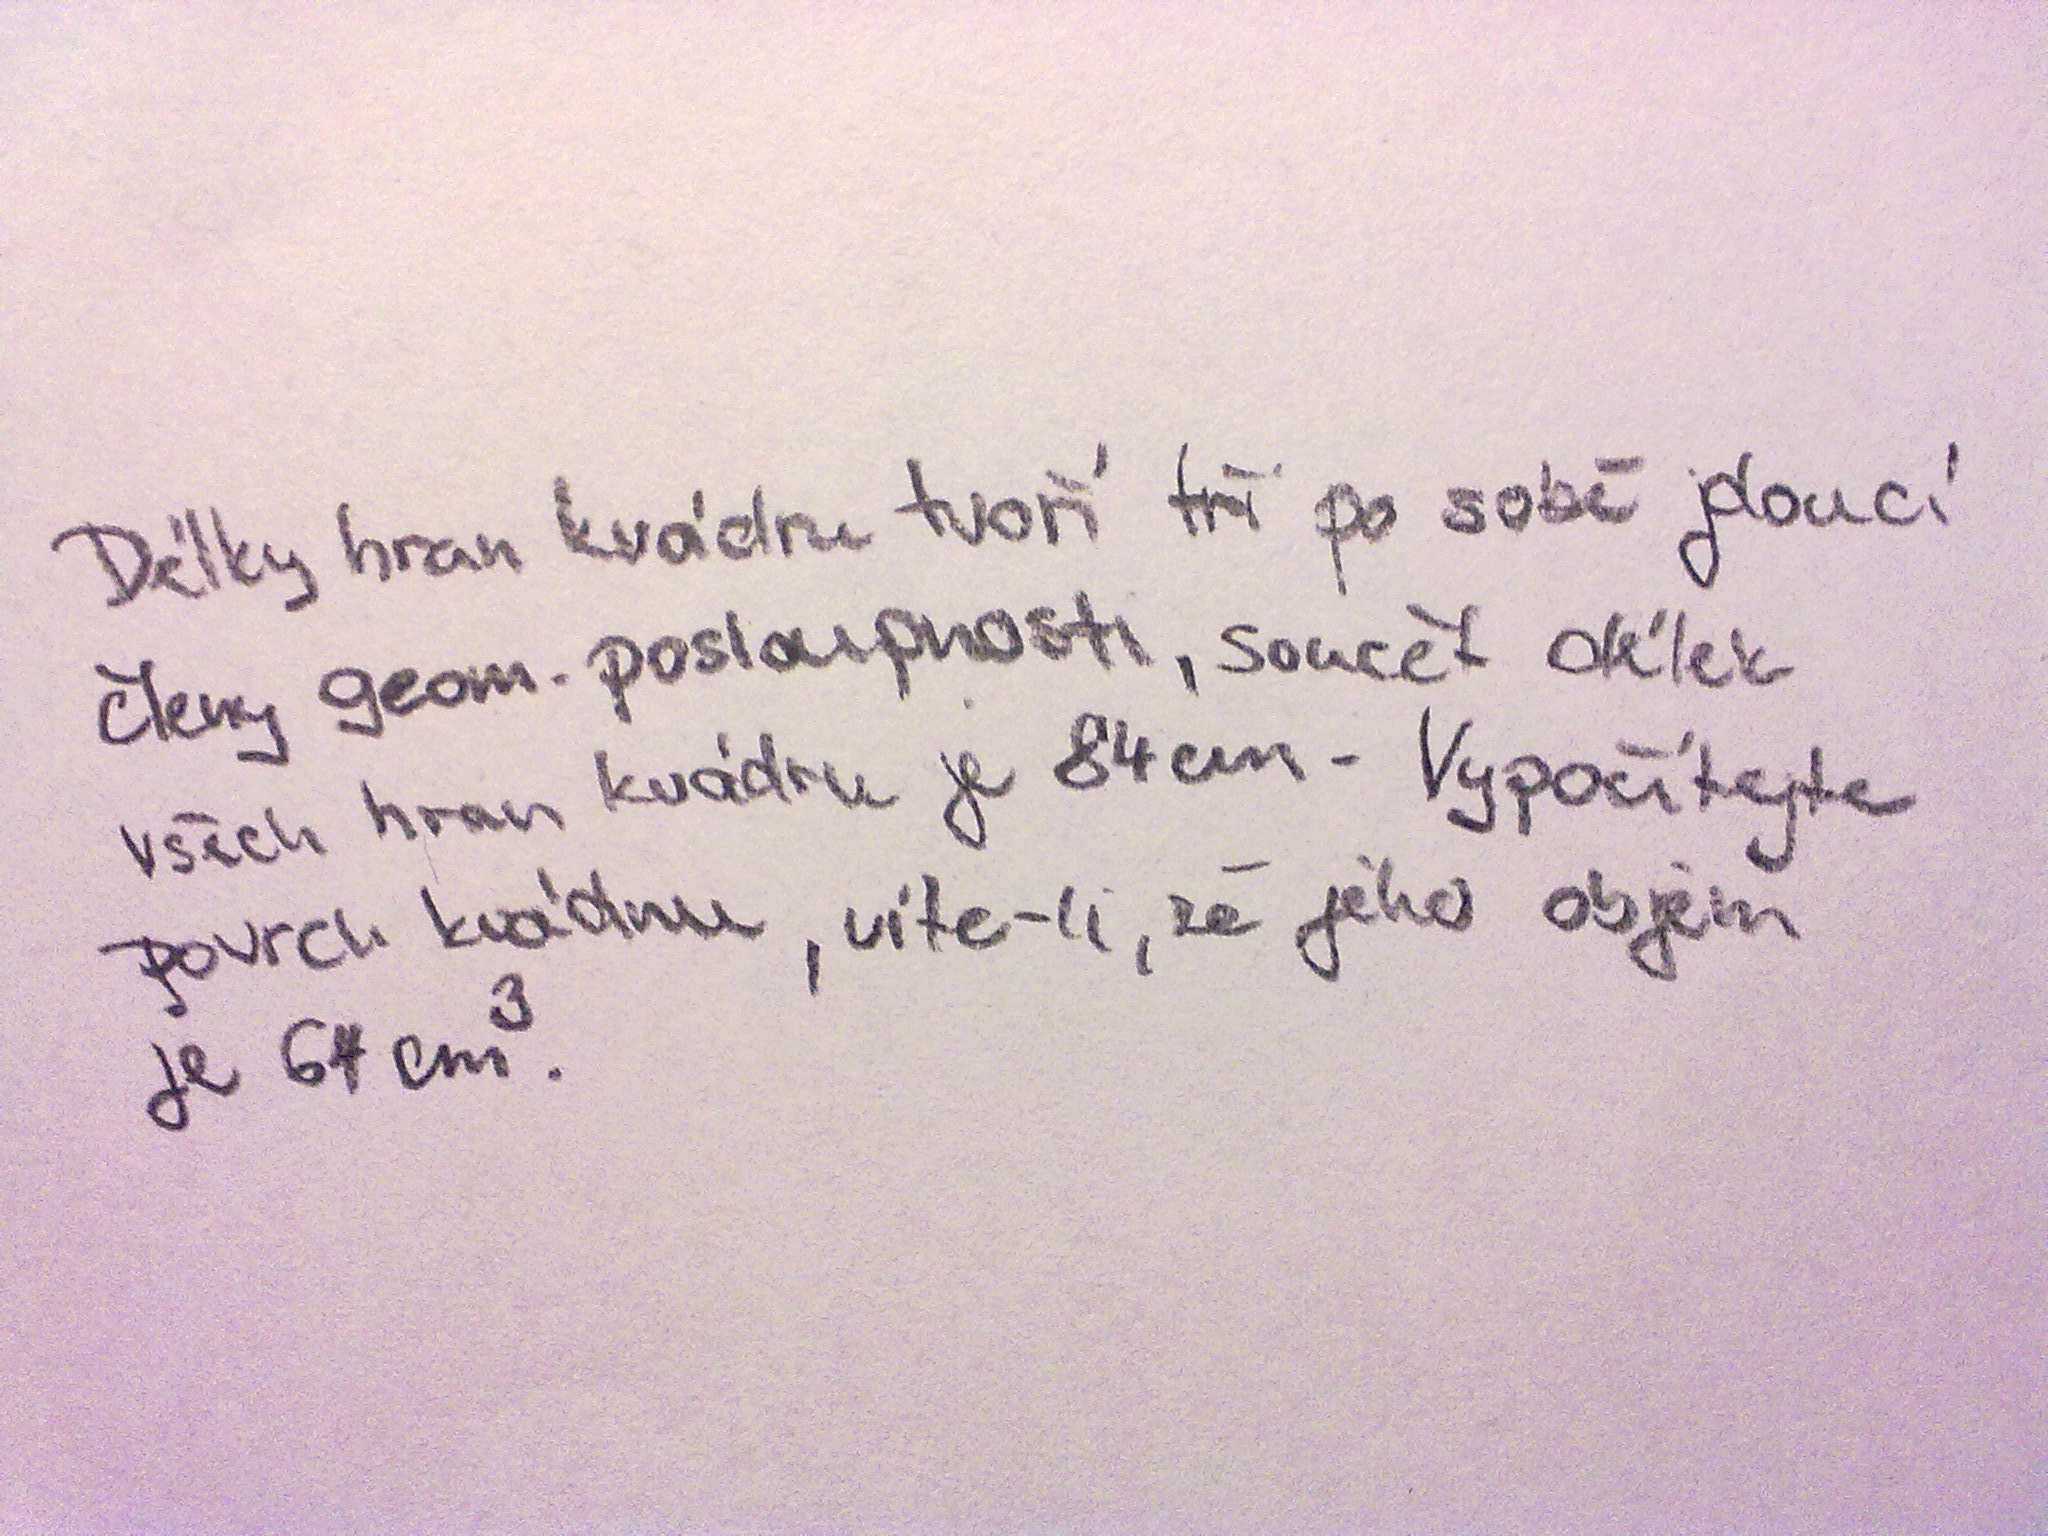 Délky hran kvádru tvoří tři po sobě jdoucí
členy geom. posloupnosti, součet délek
všech hran kvádru je 84 cm. Vypočítejte
povrch kvádru, víte-li, že jeho objem
je 64 cm³.